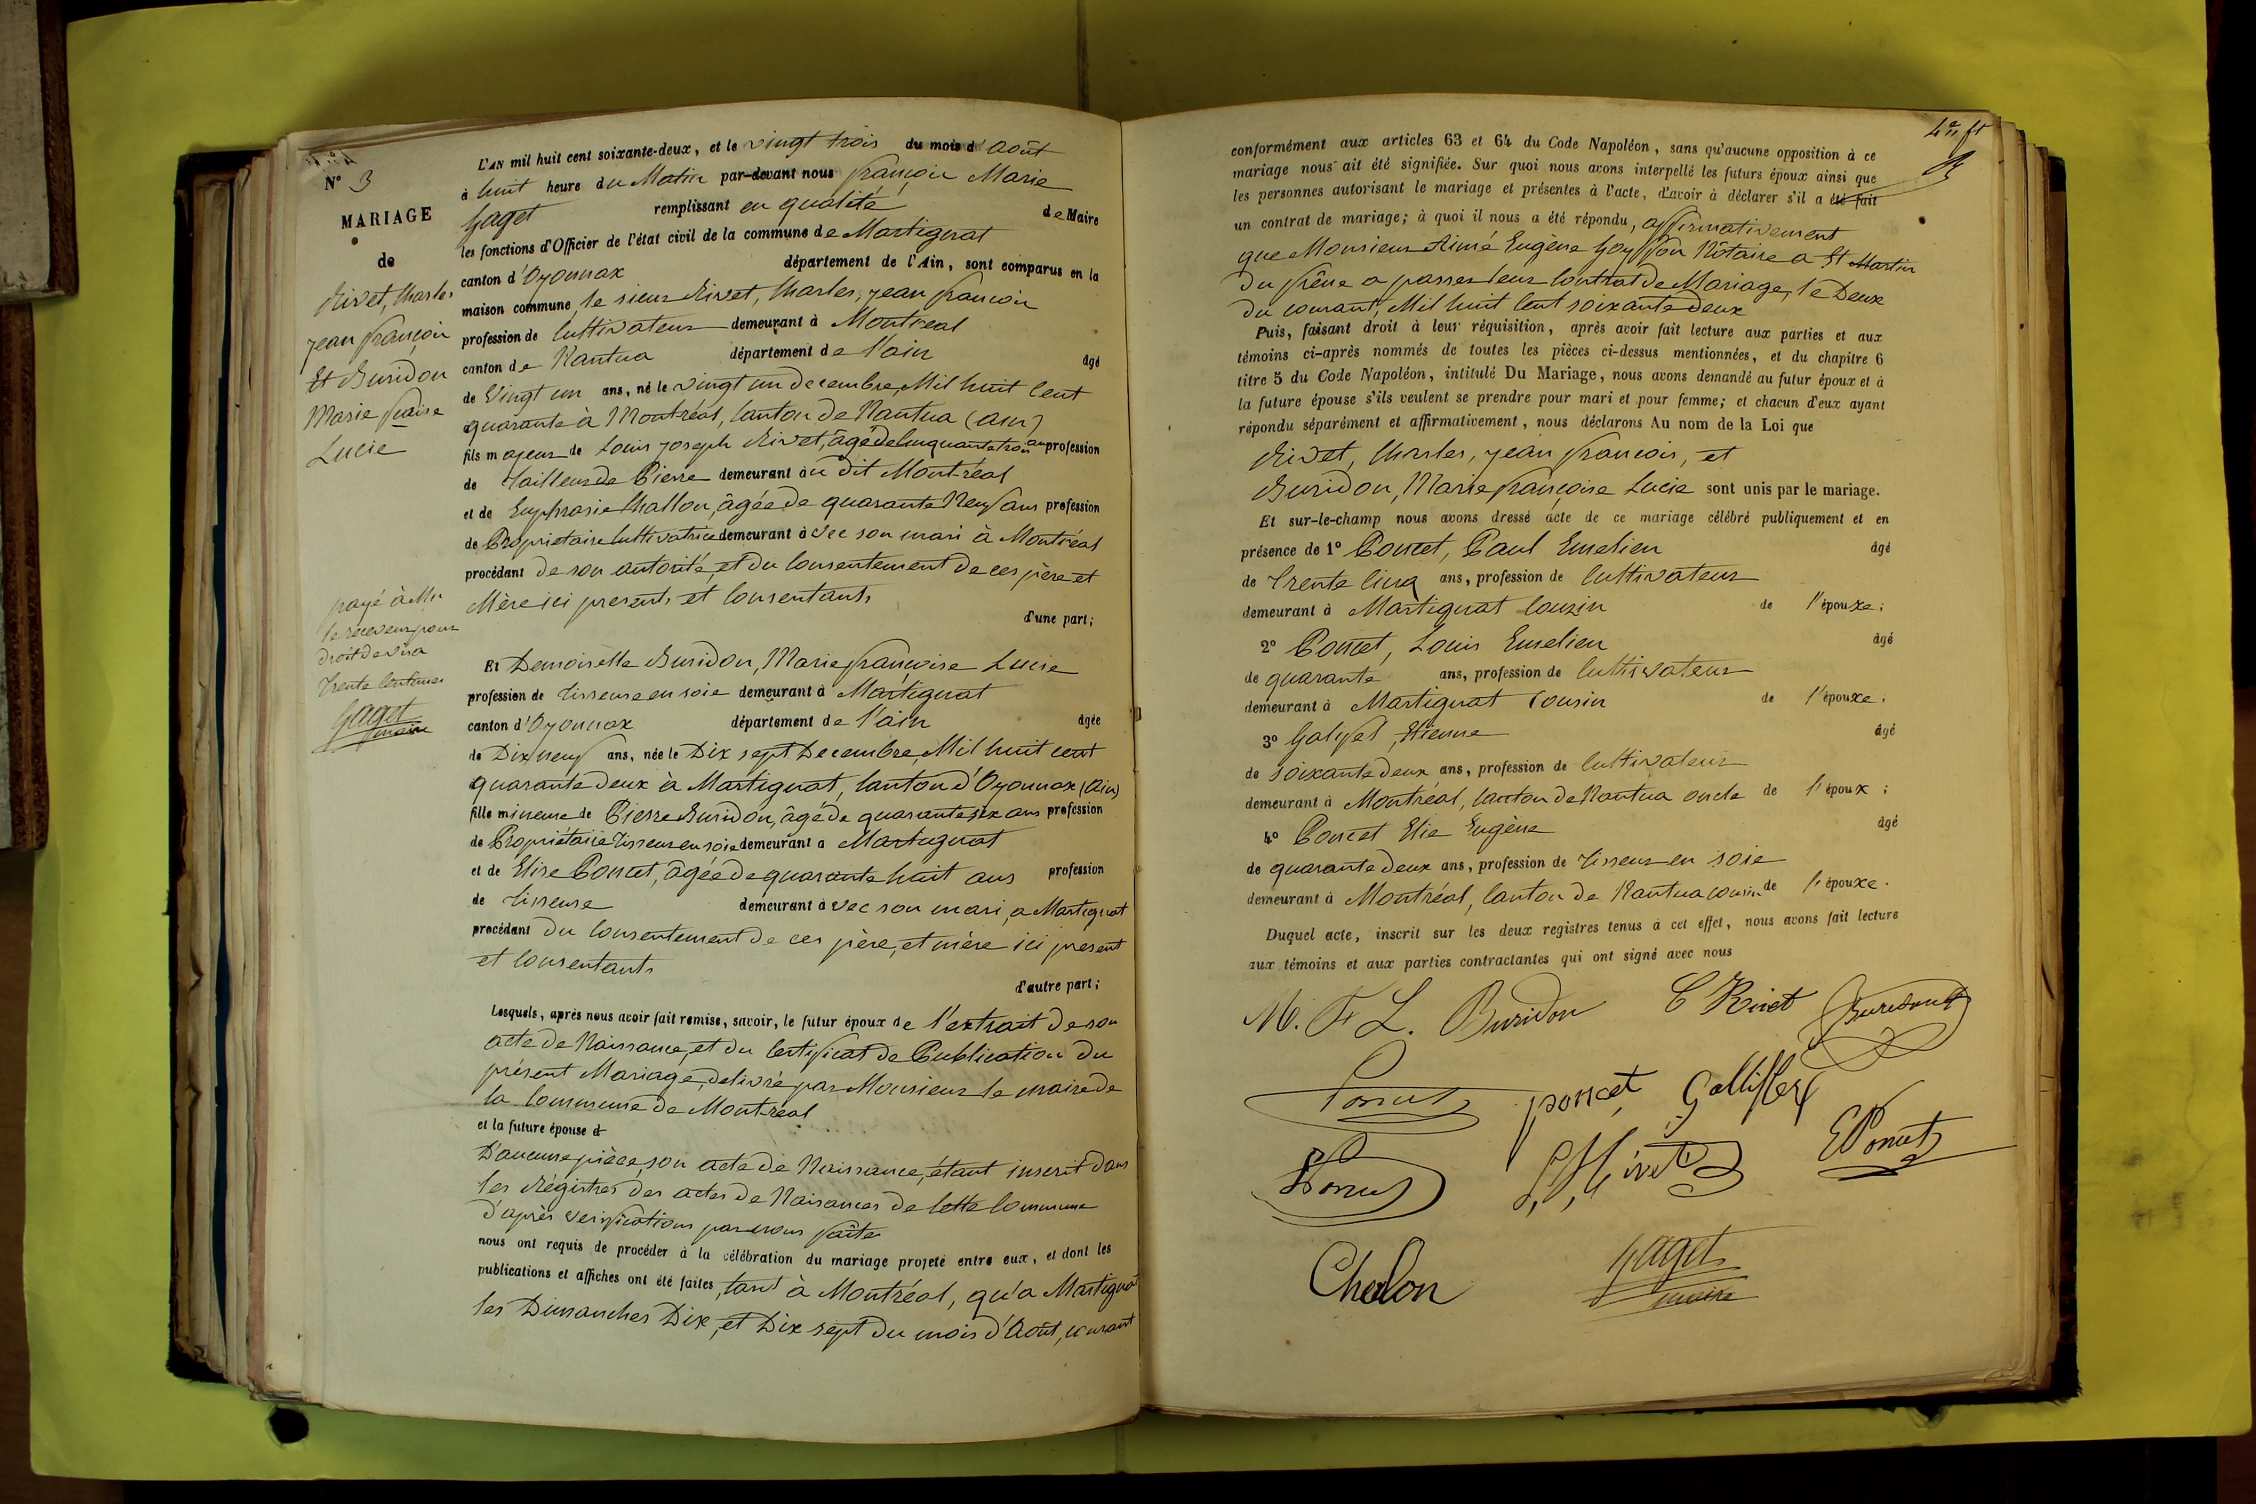 N° 3
MARIAGE
de
Rivet, Charles
Jean françois
Et Buridon
Marie fraise
Lucie
payé à Mr
le receveur pour
droit de visa
trente centimes
Gaget
maire
L'AN mil huit cent soixante-deux, et le vingt trois du mois d'Août
à huit heure du Matin par-devant nous françois Marie
Gaget remplissant en qualité de Maire
les fonctions d'Officier de l'état civil de la commune de Martignat
canton d'Oyonnax département de l'Ain, sont comparus en la
maison commune, le sieur Rivet, Charles, Jean françois
profession de Cultivateur demeurant à Montreal
canton de Nantua département de l'ain âgé
de Vingt un ans, né le vingt un decembre, Mil huit Cent
quarante à Montréal, Canton de Nantua (ain)
fils majeur de Louis Joseph Rivet, âgé de Cinquante trois ans profession
de Tailleur de Pierre demeurant au dit Montréal
et de Euphrasie Challon, âgée de quarante Neuf ans profession
de Propriétaire Cultivatrice demeurant avec son mari à Montréal
procédant de son autorité, et du Consentement de ces père et
Mère ici presents et Consentants
d'une part;
Et Demoiselle Buridon, Marie françoise Lucie
profession de Tisseuse en soie demeurant à Martignat
canton d'Oyonnax département de l'ain âgée
de Dix neuf ans, née le Dix sept Decembre, Mil huit cent
quarante deux à Martignat, Canton d'Oyonnax (Ain)
fille mineure de Pierre Buridon, âgé de quarante six ans profession
de Propriétaire Tisseur en soie demeurant a Martignat
et de Elise Poncet, âgée de quarante huit ans profession
de tisseuse demeurant avec son mari, a Martignat
procédant du Consentement de ces père, et mère ici present
et Consentants
d'autre part;
Lesquels, après nous avoir fait remise, savoir, le futur époux de l'extrait de son
acte de Naissance, et du Certificat de Publication du
présent Mariage, delivré par Monsieur le maire de
la Commune de Montreal
et la future épouse d
D'aucune pièce, son acte de Naissance, étant inscrit dans
les Régistres des actes de Naisances de Cette Commune
d'après verifications par nous faite
nous ont requis de procéder à la célébration du mariage projeté entre eux, et dont les
publications et affiches ont été faites, tant à Montréal, qu'a Martignat
les Dimanches Dix, et Dix sept du mois d'Août, courant
conformément aux articles 63 et 64 du Code Napoléon, sans qu'aucune opposition à ce
mariage nous ait été signifiée. Sur quoi nous avons interpellé les futurs époux ainsi que
les personnes autorisant le mariage et présentes à l'acte, d'avoir à déclarer s'il a été fait
un contrat de mariage; à quoi il nous a été répondu, affirmativement
que Monsieur Aimé Eugène Goyffon Nôtaire a St Martin
du frêne a passer leur Contrat de Mariage, le Deux
du courant, Mil huit Cent soixante deux
Puis, faisant droit à leur réquisition, après avoir fait lecture aux parties et aux
témoins ci-après nommés de toutes les pièces ci-dessus mentionnées, et du chapitre 6
titre 5 du Code Napoléon, intitulé Du Mariage, nous avons demandé au futur époux et à
la future épouse s'ils veulent se prendre pour mari et pour femme; et chacun d'eux ayant
répondu séparément et affirmativement, nous déclarons Au nom de la Loi que
Rivet, Charles, Jean françois, et
Buridon, Marie françoise Lucie sont unis par le mariage.
Et sur-le-champ nous avons dressé acte de ce mariage célébré publiquement et en
présence de 1° Poncet, Paul Emelien âgé
de Trente Cinq ans, profession de Cultivateur
demeurant à Martignat Couzin de l'épouxe;
2° Poncet, Louis Emelien âgé
de quarante ans, profession de Cultivateur
demeurant à Martignat Cousin de l'épouxe.
3° Galifet, Etienne âgé
de soixante deux ans, profession de Cultivateur
demeurant à Montréal, Canton de Nantua oncle de l'époux;
4° Poncet Elie Eugène âgé
de quarante deux ans, profession de Tisseur en soie
demeurant à Montréal, Canton de Nantua cousin de l'épouxe.
Duquel acte, inscrit sur les deux registres tenus à cet effet, nous avons fait lecture
aux témoins et aux parties contractantes qui ont signé avec nous
M. F L. Buridon C Rivet Buridon
Poncet poncet Galliffet
Poncet L, J, Rivet E Poncet
Chalon Gaget
maire